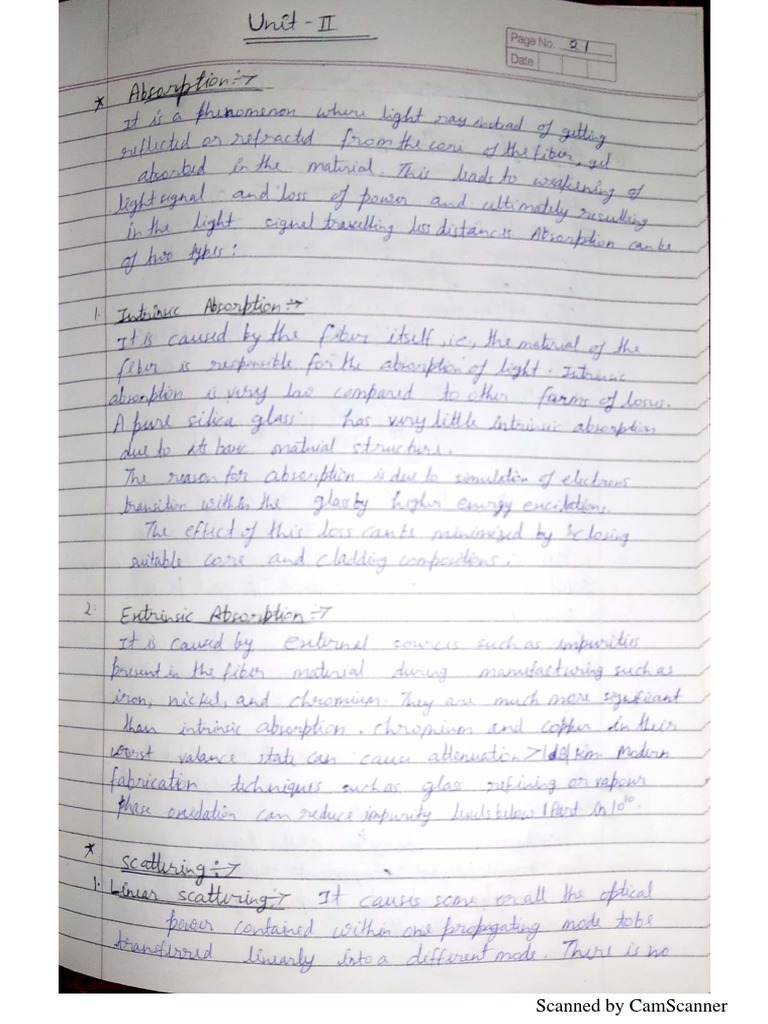 Unit - II
Page No. 21
Date
* Absorption :->
It is a phenomenon where light ray instead of getting
reflected or refracted from the core of the fiber, get
absorbed in the material. This leads to weakening of
light signal and loss of power and ultimately resulting
in the light signal travelling less distances. Absorption can be
of two types :
1. Intrinsic Absorption :->
It is caused by the fiber itself, i.e., the material of the
fiber is responsible for the absorption of light. Intrinsic
absorption is very low compared to other forms of losses.
A pure silica glass has very little intrinsic absorption
due to its basic material structure.
The reason for absorption is due to simulation of electrons
transition within the glass by higher energy excitation.
The effect of this loss can be minimized by closing
suitable core and cladding compositions.
2. Extrinsic Absorption :->
It is caused by external sources such as impurities
present in the fiber material during manufacturing such as
iron, nickel, and chromium. They are much more significant
than intrinsic absorption. Chromium and copper in their
worst valance state can cause attenuation > 1dB/km. Modern
fabrication techniques such as glass refining or vapour
phase oxidation can reduce impurity levels below 1 Part in 10¹⁰.
* Scattering :->
1. Linear scattering :-> It causes some or all the optical
power contained within one propagating mode to be
transferred linearly into a different mode. There is no
Scanned by CamScanner